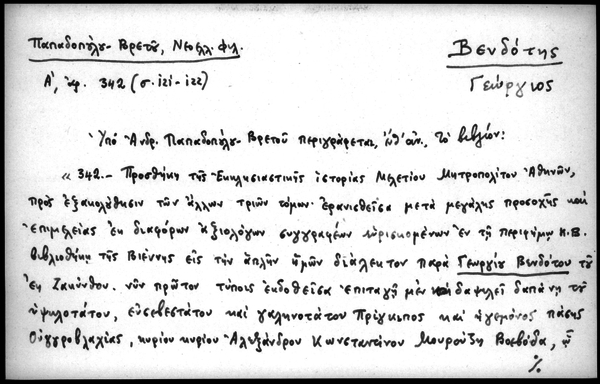 Παπαδοπούλου-Βρετοῦ, Νεοελλ. φιλ.
Βενδότης
Α', ἀρ. 342 (σ. 121-122)
Γεώργιος
Ὑπὸ Ἀνδρ. Παπαδοπούλου-Βρετοῦ περιγράφεται, ἔνθ' ἀν., τὸ βιβλίον:
« 342.- Προσθήκη τῆς Ἐκκλησιαστικῆς ἱστορίας Μελετίου Μητροπολίτου Ἀθηνῶν,
πρὸς ἐξακολούθησιν τῶν ἄλλων τριῶν τόμων· ἐρανισθεῖσα μετὰ μεγάλης προσοχῆς καὶ
ἐπιμελείας ἐκ διαφόρων ἀξιολόγων συγγραφέων εὑρισκομένων ἐν τῇ περιφήμῳ Κ.Β.
βιβλιοθήκῃ τῆς Βιέννης εἰς τὴν ἁπλῆν ἡμῶν διάλεκτον παρὰ Γεωργίου Βενδότου τοῦ
ἐκ Ζακύνθου. νῦν πρῶτον τύποις ἐκδοθεῖσα ἐπιταγῇ μὲν καὶ δαψιλεῖ δαπάνῃ τοῦ
ὑψηλοτάτου, εὐσεβεστάτου καὶ γαληνοτάτου Πρίγκιπος καὶ ἡγεμόνος πάσης
Οὑγγροβλαχίας, κυρίου κυρίου Ἀλεξάνδρου Κωνσταντίνου Μουρούζη Βοεβόδα, ᾧ
./.